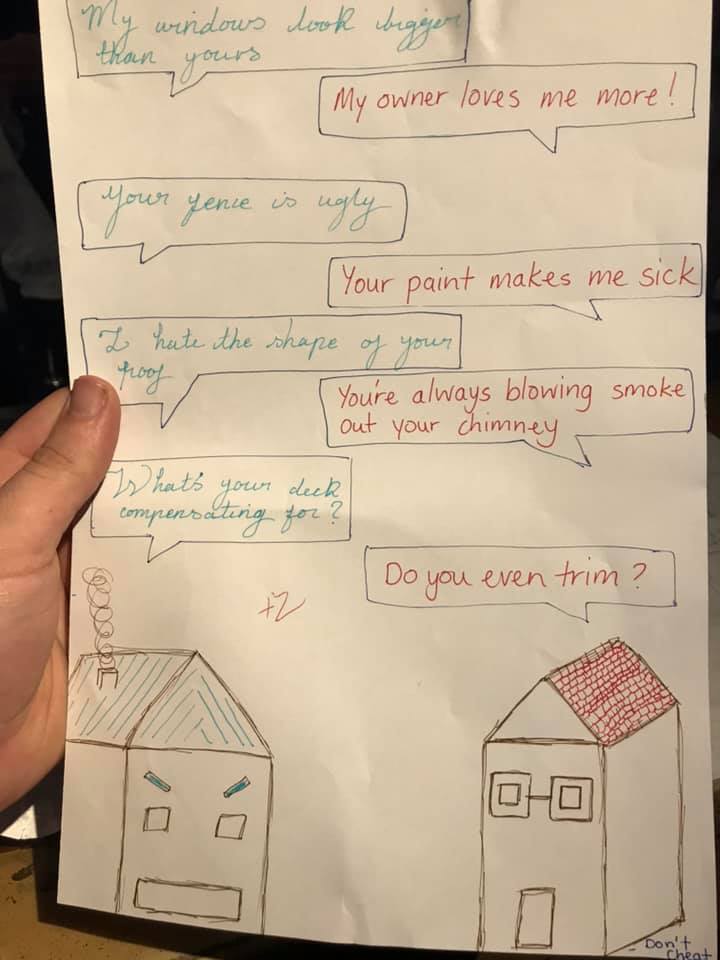 My windows look bigger
than yours
My owner loves me more!
Your fence is ugly
Your paint makes me sick
I hate the shape of your
roof
You're always blowing smoke
out your chimney
What's your deck
compensating for?
Do you even trim?
+2
- Don't
Cheat